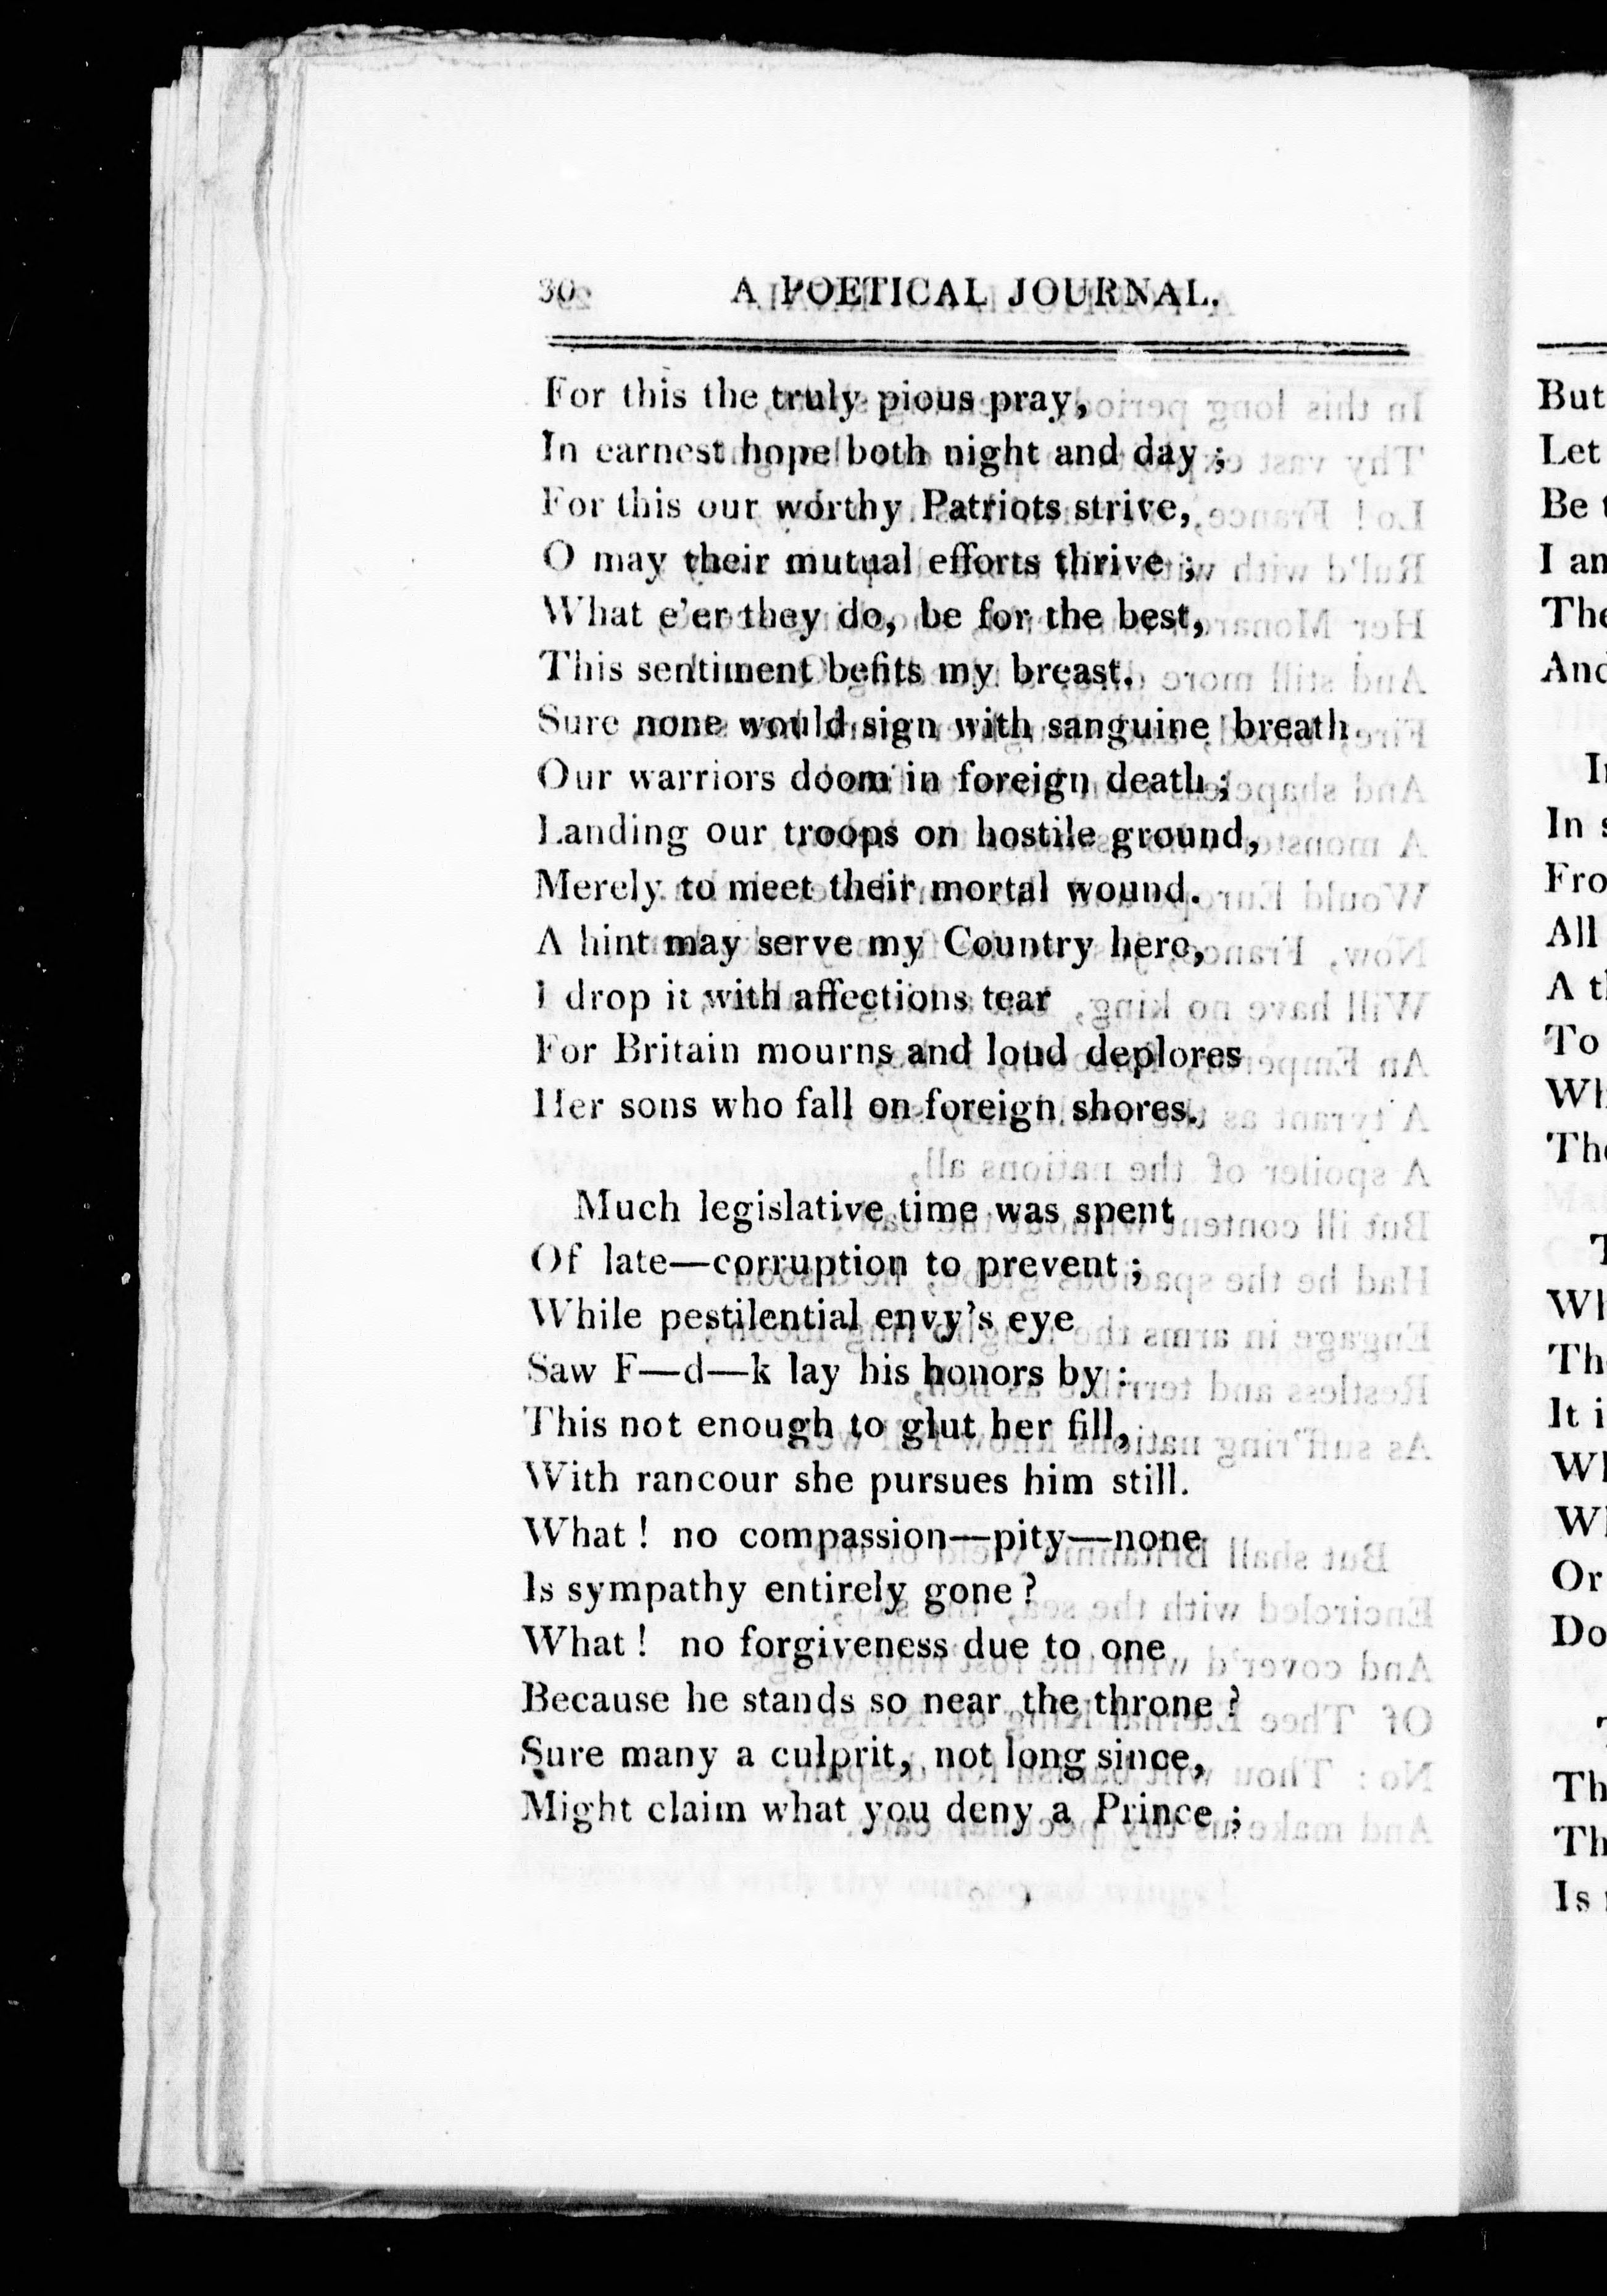 30 A POETICAL JOURNAL.
For this the truly pious pray,
In earnest hope both night and day ;
For this our worthy Patriots strive,
O may their mutual efforts thrive ;
What e'er they do, be for the best,
This sentiment befits my breast.
Sure none would sign with sanguine breath
Our warriors doom in foreign death ;
Landing our troops on hostile ground,
Merely to meet their mortal wound.
A hint may serve my Country here,
I drop it with affections tear
For Britain mourns and loud deplores
Her sons who fall on foreign shores.
Much legislative time was spent
Of late—corruption to prevent ;
While pestilential envy's eye
Saw F—d—k lay his honors by :
This not enough to glut her fill,
With rancour she pursues him still.
What ! no compassion—pity—none
Is sympathy entirely gone ?
What ! no forgiveness due to one
Because he stands so near the throne ?
Sure many a culprit, not long since,
Might claim what you deny a Prince ;
But
Let
Be
I
The
And
In
All
A
To
Or
Do
Is